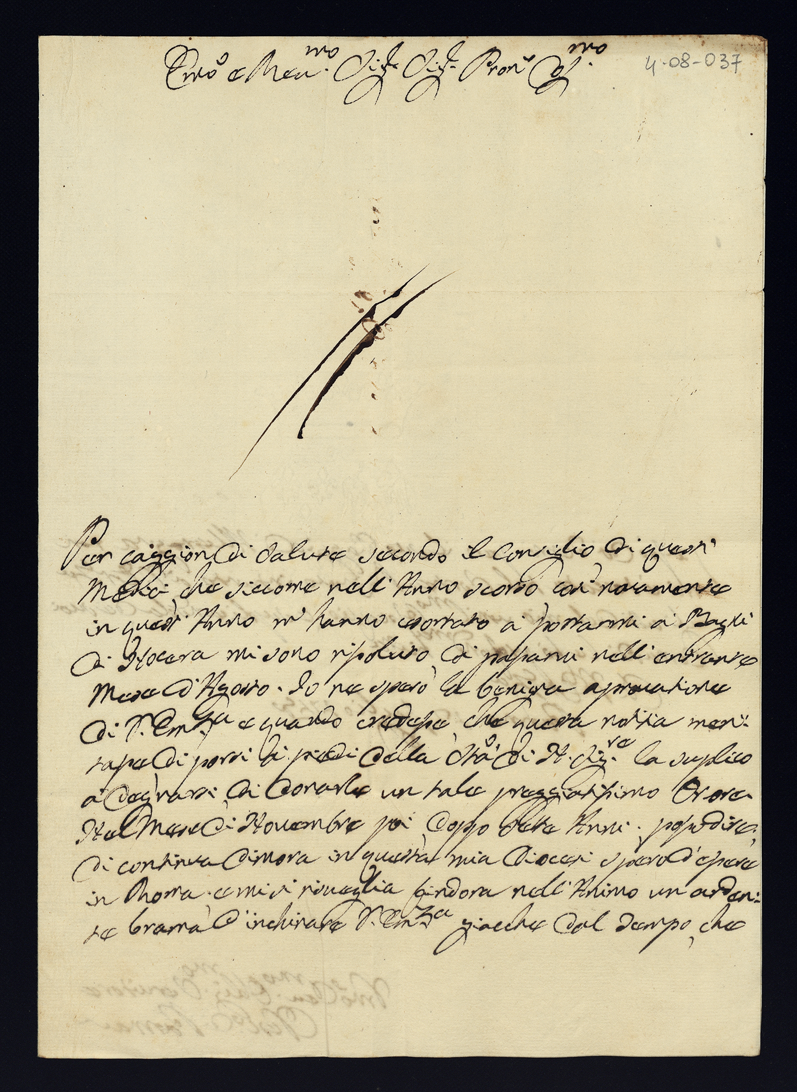 Em.o e Rev.mo Sig.r Sig.r Pron Col.mo
4-08-037
Per caggion di Salute secondo il Consiglio di questi
Medici che siccome nell'Anno scorso così novamente
in quest'Anno m'hanno esortato a portarmi a Bagni
di Nocera mi sono risoluto di passarvi nell'entrante
Mese d'Agosto. Io ne spero la benigna aprovatione
di V. Em.za e quando credesse che questa notitia meri-
tasse di porsi a piedi della Stà di N. Sig.re la suplico
a degnarsi di donarle un tale preggiatissimo Onore.
Nel Mese di Novembre poi doppo Anni posso dire
di continua dimora in questa mia Diocesi spero d'essere
in Roma e mi si risveglia sindora nell'Animo un arden-
te brama d'inchinare V. Em.za giacche dal tempo, che